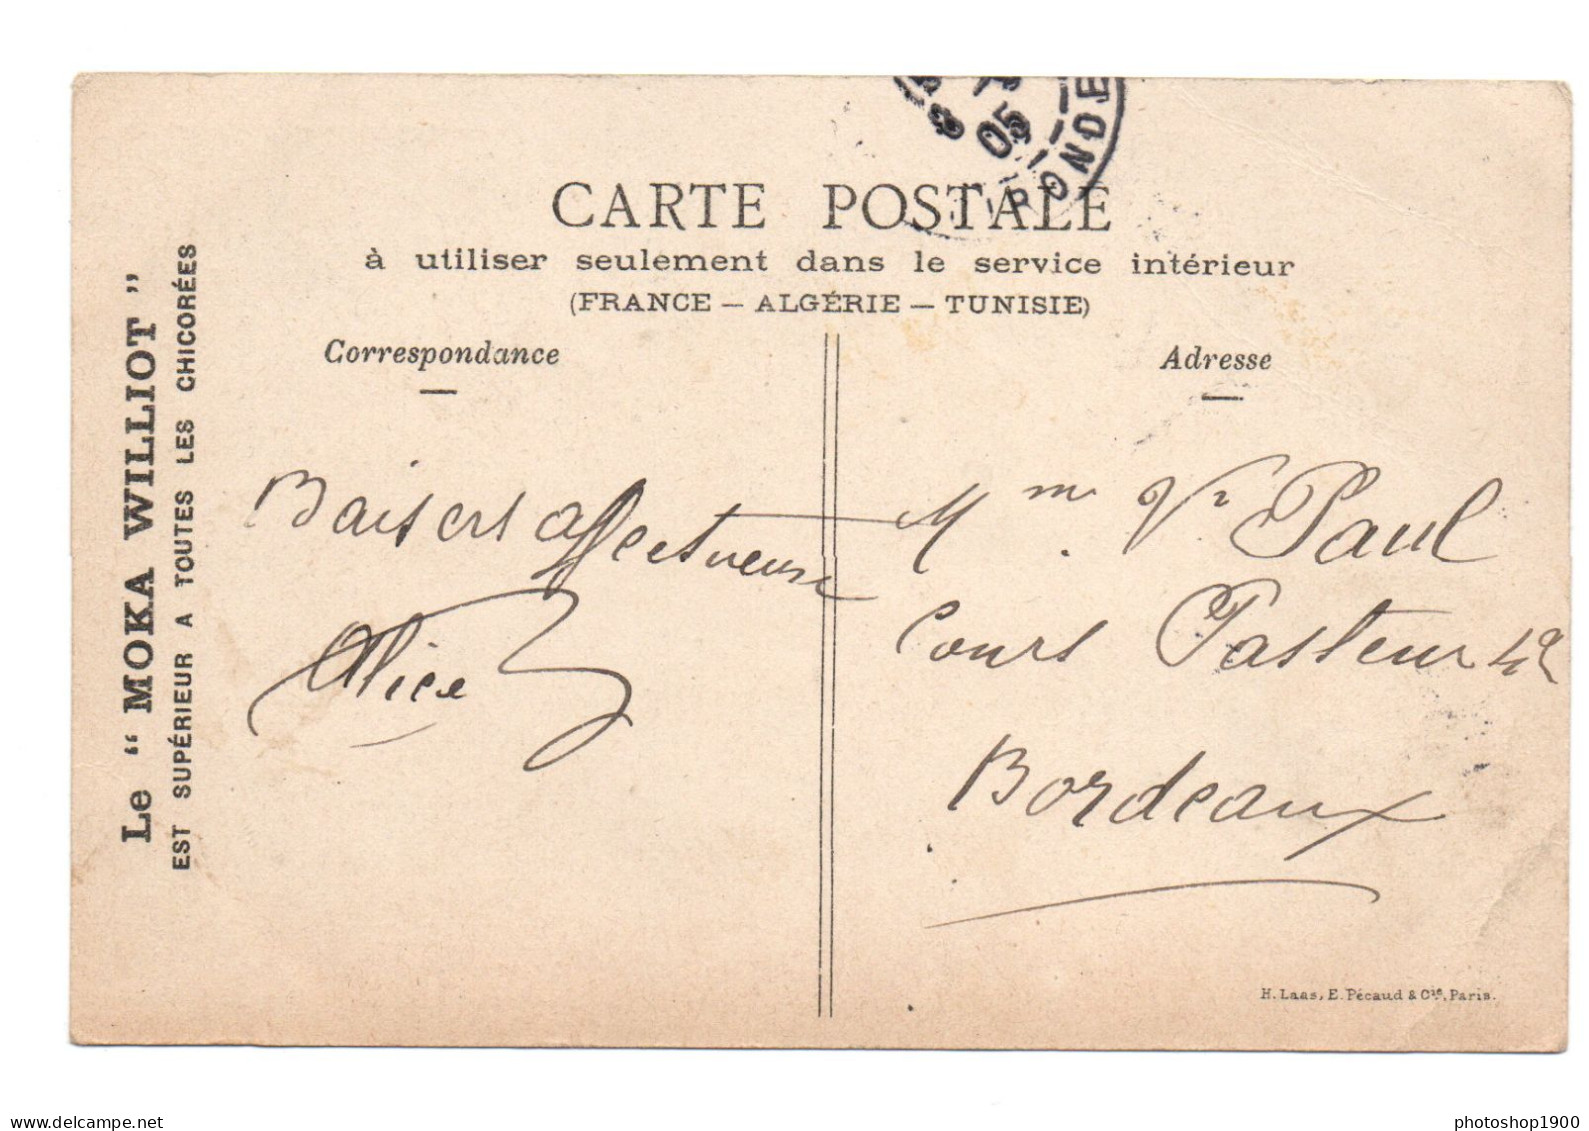 05
RONDE
CARTE POSTALE
à utiliser seulement dans le service intérieur
(FRANCE — ALGÉRIE — TUNISIE)
Correspondance
Adresse
Le “ MOKA WILLIOT ”
EST SUPÉRIEUR A TOUTES LES CHICORÉES
Baisers affectueux
Alice
Mme Vve Paul
Cours Pasteur 42
Bordeaux
H. Laas, E. Pécaud & Cie, Paris.
www.delcampe.net
photoshop1900